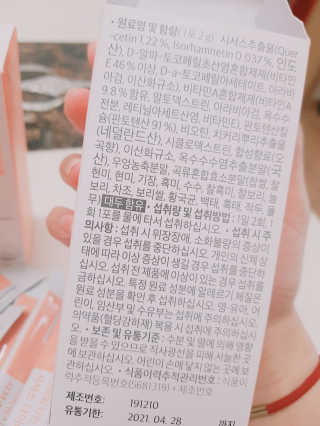 • 원료명 및 함량(1포 2g) 시서스추출물(Quer
-cetin 1.22 %, Isorhamnetin 0.037%, 인도
산), D-알파-토코페릴초산염혼합제제(비타민
E 46 % 이상, D-α-토코페릴아세테이트, 아라비
아검, 이산화규소), 비타민A혼합제제(비타민A
9.8 % 함유, 말토덱스트린, 아라비아검, 옥수수
전분, 레티닐아세트산염, 비타민E), 판토텐산칼
슘(판토텐산 91 %), 비오틴, 치커리뿌리추출물
(네덜란드산), 시클로덱스트린, 합성향료(오
곡향), 이산화규소, 옥수수수염추출분말(국
산), 우엉농축분말, 곡류혼합효소분말(찹쌀, 찰
현미, 현미, 기장, 흑미, 수수, 찰흑미, 찰보리, 늘
보리, 차조, 보리쌀, 황국균, 백태, 흑태, 적두, 율
무) 대두 함유 • 섭취량 및 섭취방법 : 1일 2회, 1
회 1포를 물에 타서 섭취하십시오. • 섭취 시 주
의사항 : 섭취 시 위장장애, 소화불량의 증상이
있을 경우 섭취를 중단하십시오. 개인의 신체 상
태에 따라 이상 증상이 생길 경우 섭취를 중단하
십시오. 섭취 전 제품에 이상이 있는 경우 섭취를
금하십시오. 특정 원료 성분에 알레르기 체질은
원료 성분을 확인 후 섭취하십시오. 영·유아, 어
린이, 임산부 및 수유부는 섭취에 주의하십시오.
의약품(혈당강하제) 복용 시 섭취에 주의하십시
오. • 보존 및 유통기준 : 수분 및 열에 의해 영향
을 받을 수 있으므로 직사광선을 피해 서늘한 곳
에 보관하십시오. 어린이 손에 닿지 않는 곳에 보
관하십시오 • 식품이력추적관리번호 : 식품이
력추적등록번호(5681319) + 제조번호
제조번호: 191210
유통기한: 2021. 04. 28 까지